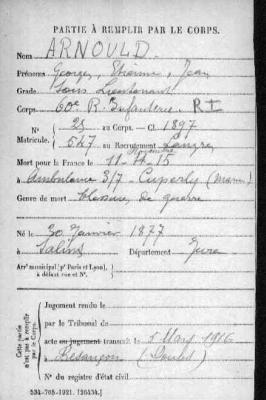 PARTIE À REMPLIR PAR LE CORPS.
Nom ARNOULD.
Prénoms Georges, Etienne, Jean
Grade Sous Lieutenant
Corps 60e R. Infanterie. R I
N° 28 au Corps. — Cl. 1897
Matricule. 547 au Recrutement Langres
Mort pour la France le 11 Novembre 15
à Ambulance 3/7 Cuperly (Marne)
Genre de mort blessures de guerre
Né le 30 Janvier 1877
à Salins Département Jura
Arrt municipal (pr Paris et Lyon),
à défaut rue et N°.
Cette partie n'est pas à remplir par le Corps.
Jugement rendu le
par le Tribunal de
acte ou jugement transcrit le 5 Mars 1916
à Besançon (Doubs)
N° du registre d'état civil
534-708-1921. [26434.]